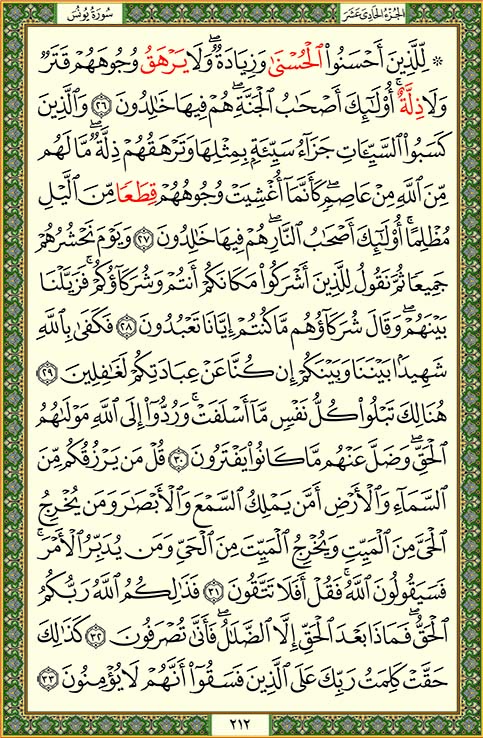 سُورَةُ يُونُسَ الجُزءُ الحَادِى عَشَرَ
۞ لِّلَّذِينَ أَحْسَنُوا۟ ٱلْحُسْنَىٰ وَزِيَادَةٌ ۖ وَلَا يَرْهَقُ وُجُوهَهُمْ قَتَرٌ
وَلَا ذِلَّةٌ ۚ أُو۟لَـٰٓئِكَ أَصْحَـٰبُ ٱلْجَنَّةِ ۖ هُمْ فِيهَا خَـٰلِدُونَ ٢٦ وَٱلَّذِينَ
كَسَبُوا۟ ٱلسَّيِّـَٔاتِ جَزَآءُ سَيِّئَةٍۭ بِمِثْلِهَا وَتَرْهَقُهُمْ ذِلَّةٌ ۖ مَّا لَهُم
مِّنَ ٱللَّهِ مِنْ عَاصِمٍ ۖ كَأَنَّمَآ أُغْشِيَتْ وُجُوهُهُمْ قِطَعًا مِّنَ ٱلَّيْلِ
مُظْلِمًا ۚ أُو۟لَـٰٓئِكَ أَصْحَـٰبُ ٱلنَّارِ ۖ هُمْ فِيهَا خَـٰلِدُونَ ٢٧ وَيَوْمَ نَحْشُرُهُمْ
جَمِيعًا ثُمَّ نَقُولُ لِلَّذِينَ أَشْرَكُوا۟ مَكَانَكُمْ أَنتُمْ وَشُرَكَآؤُكُمْ ۚ فَزَيَّلْنَا
بَيْنَهُمْ ۖ وَقَالَ شُرَكَآؤُهُم مَّا كُنتُمْ إِيَّانَا تَعْبُدُونَ ٢٨ فَكَفَىٰ بِٱللَّهِ
شَهِيدًۢا بَيْنَنَا وَبَيْنَكُمْ إِن كُنَّا عَنْ عِبَادَتِكُمْ لَغَـٰفِلِينَ ٢٩
هُنَالِكَ تَبْلُوا۟ كُلُّ نَفْسٍ مَّآ أَسْلَفَتْ ۚ وَرُدُّوٓا۟ إِلَى ٱللَّهِ مَوْلَىٰهُمُ
ٱلْحَقِّ ۖ وَضَلَّ عَنْهُم مَّا كَانُوا۟ يَفْتَرُونَ ٣٠ قُلْ مَن يَرْزُقُكُم مِّنَ
ٱلسَّمَآءِ وَٱلْأَرْضِ أَمَّن يَمْلِكُ ٱلسَّمْعَ وَٱلْأَبْصَـٰرَ وَمَن يُخْرِجُ
ٱلْحَىَّ مِنَ ٱلْمَيِّتِ وَيُخْرِجُ ٱلْمَيِّتَ مِنَ ٱلْحَىِّ وَمَن يُدَبِّرُ ٱلْأَمْرَ ۚ
فَسَيَقُولُونَ ٱللَّهُ ۚ فَقُلْ أَفَلَا تَتَّقُونَ ٣١ فَذَٰلِكُمُ ٱللَّهُ رَبُّكُمُ
ٱلْحَقُّ ۖ فَمَاذَا بَعْدَ ٱلْحَقِّ إِلَّا ٱلضَّلَـٰلُ ۖ فَأَنَّىٰ تُصْرَفُونَ ٣٢ كَذَٰلِكَ
حَقَّتْ كَلِمَتُ رَبِّكَ عَلَى ٱلَّذِينَ فَسَقُوٓا۟ أَنَّهُمْ لَا يُؤْمِنُونَ ٣٣
٢١٢